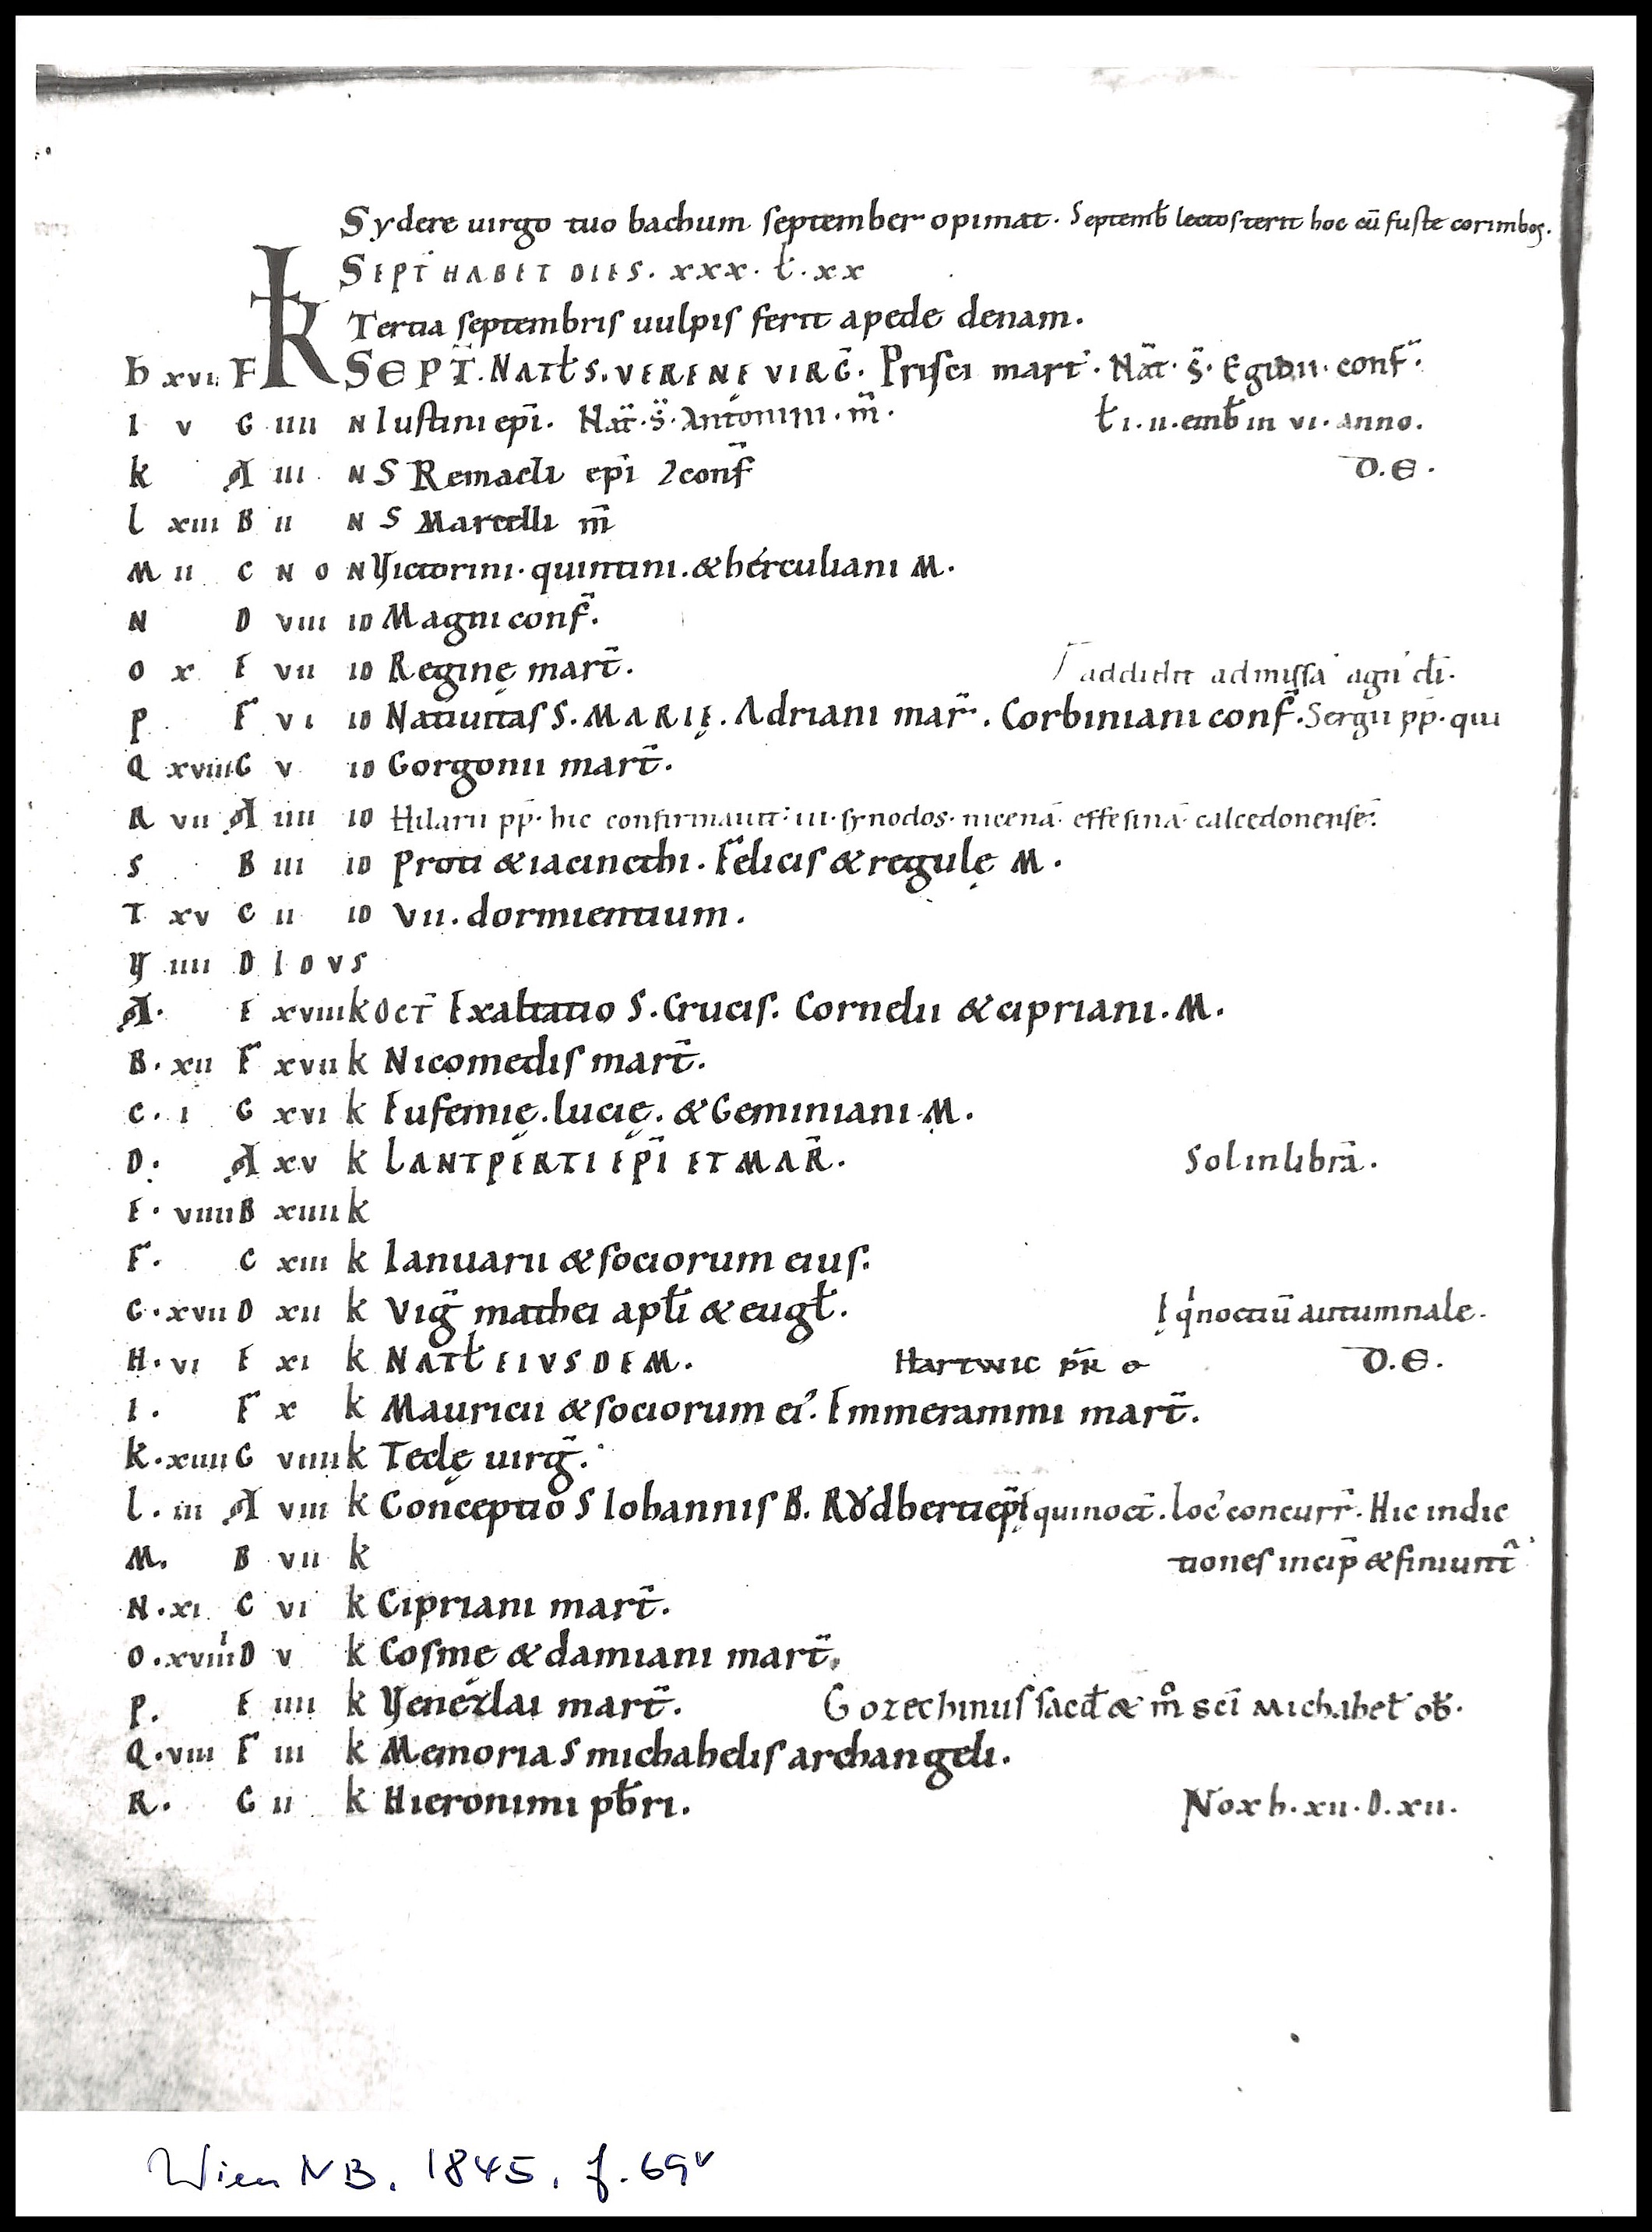 Sydere uirgo tuo bachum september opimat. Septemƀ lectos terit hoc cū fuste corimbos.
SEPT̄ HABET DIES. xxx. ł. xx
Tertia septembris uulpis ferit apede denam.
h xvi F K SEPT̄. NATƗS. VERENE VIRḠ. Prisci mart̄. Nat̄. S̄. Egidii. conf̄.
I v G iiii N Iustini epī. Nat̄. S̄. Antonini. m̄. ł i. ii. emƀ in vi. anno.
k A iii N S Remacli epī ⁊ conf̄ D. E.
l xiii B ii N S Marcelli m̄
M ii C N O N Victorini. quintini. & hérculiani M.
N D viii ID Magni conf̄.
O x E vii ID Reginę mart̄. addidit ad missā agn̄ dī.
P F vi ID Natiuitas S. MARIĘ. Adriani mar̄. Corbiniani conf̄. Sergii pp̄. qui
Q xviii G v ID Gorgonii mart̄.
R vii A iiii ID Hilarii pp̄. hic confirmauit iii. synodos. nicenā. effesinā. calcedonensē.
S B iii ID Proti & iacincthi. Felicis & regulę M.
T xv C ii ID VII. dormientium.
V iiii D IDVS
A. E xviii k OCT̄ Exaltatio S. Crucis. Cornelii & cipriani. M.
B. xii F xvii k Nicomedis mart̄.
C. i G xvi k Eufemię. lucię. & Geminiani M.
D. A xv k LANTPERTI EPĪ ET MAR̄. Sol in librā.
E. viiii B xiiii k
F. C xiii k Ianuarii & sociorum eius.
G. xvii D xii k Viḡ mathei apƚi & eugƚ. Ęq'noctiū autumnale.
H. vi E xi k NATƗ EIVSDEM. Hartwic pr̄ o D. E.
I. F x k Mauricii & sociorum ei'. Emmerammi mart̄.
K. xiiii G viiii k Teclę uirḡ.
L. iii A viii k Conceptio S Iohannis B. Rǒdberti ep̄i Ęquinoct̄. loc' concurr̄. Hic indic
M. B vii k tiones incip̄ & finiunt̄
N. xi C vi k Cipriani mart̄.
O. xviiii D v k Cosme & damiani mart̄.
P. E iiii k Venezlai mart̄. Gozechinus sacđ & m̊ sc̄i Michahel' oƀ.
Q. viii F iii k Memoria S michahelis archangeli.
R. G ii k Hieronimi pƀri. Nox h. xii. D. xii.
Wien NB. 1845. f. 69v